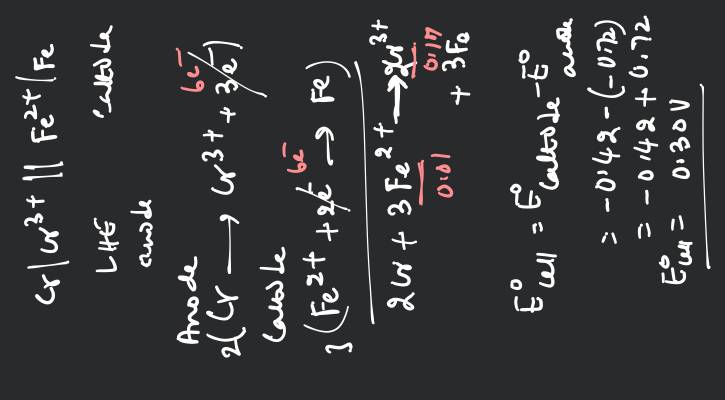 Cr | Cr³⁺ || Fe²⁺ | Fe
LHE cathode
anode
Anode 6e⁻
2(Cr → Cr³⁺ + 3e⁻)
Cathode 6e⁻
3(Fe²⁺ + 2e⁻ → Fe)
2Cr + 3Fe²⁺ → 2Cr³⁺
0.01 0.17
+ 3Fe
E°cell = E°cathode - E°anode
= -0.42 - (-0.72)
= -0.42 + 0.72
E°cell = 0.30V